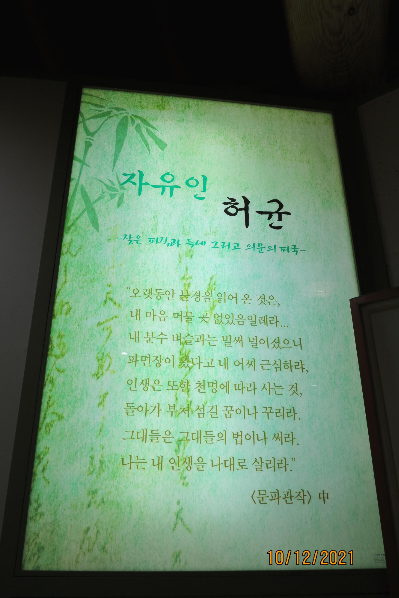 자유인
허균
잦은 파직과 유배 그리고 의문의 죽음
"오랫동안 불경을 읽어 온 것은,
내 마음 머물 곳 없었음일레라...
내 분수 벼슬과는 벌써 멀어졌으니
파면장이 왔다고 내 어찌 근심하랴,
인생은 또한 천명에 따라 사는 것,
돌아가 부처 섬길 꿈이나 꾸리라.
그대들은 그대들의 법이나 써라.
나는 내 인생을 나대로 살리라."
〈문파관작〉 中
10/12/2021